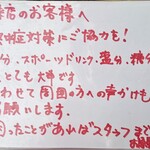 店のお客様へ
症対策にご協力を!
分、スポーツドリンク、塩分、糖分
とても大事です
わせて周囲の方への声かけも
願いします。
困ったことがあればスタッフまで